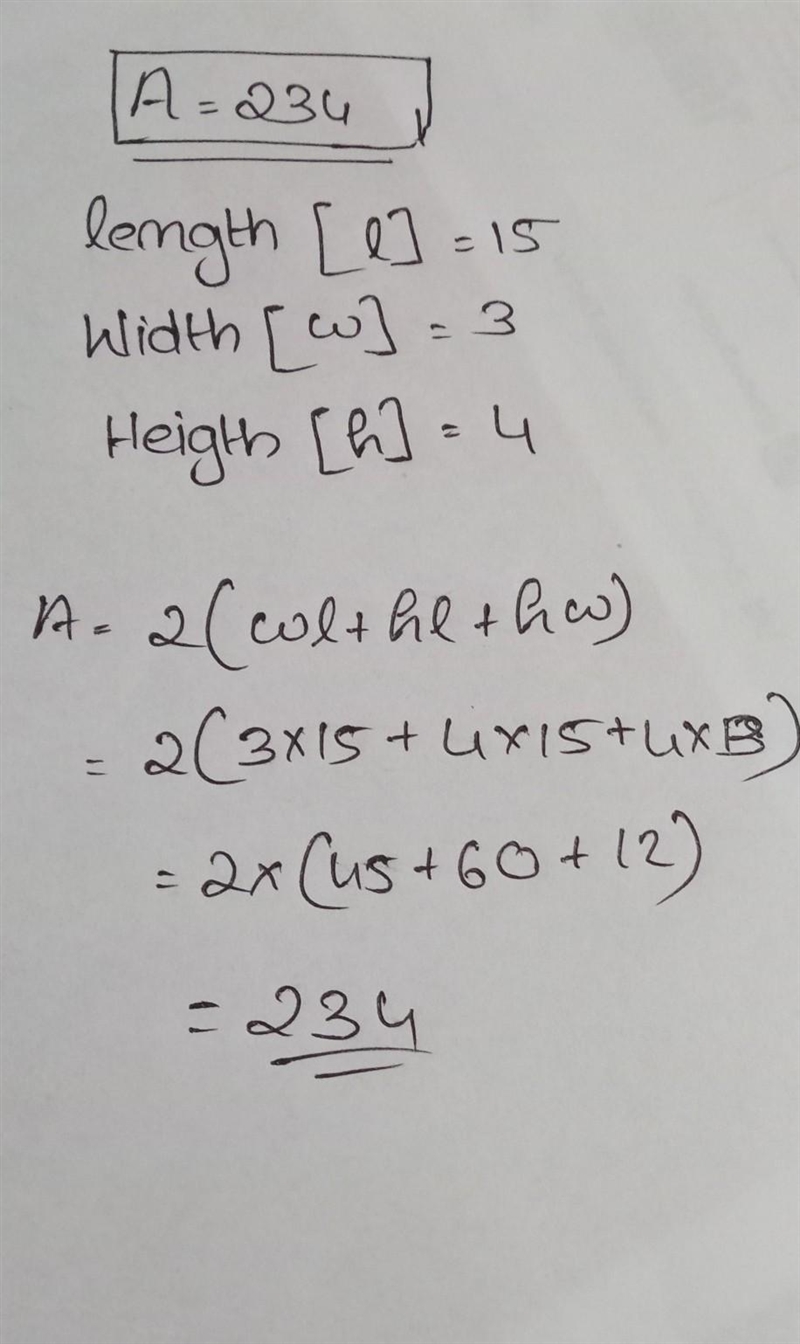 A = 234
length [l] = 15
Width [w] = 3
Heigth [h] = 4
A = 2(wl + hl + hw)
= 2(3×15 + 4×15 + 4×3)
= 2×(45 + 60 + 12)
= 234